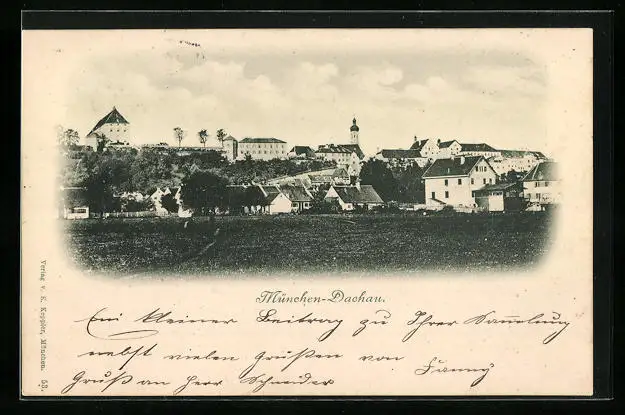 München-Dachau.
Ein kleiner Beitrag zu Ihrer Sammlung
nebst vielen Grüßen von Fanny
Gruß an Herr Schneider
Verlag v. K. Keppler, München. 53.